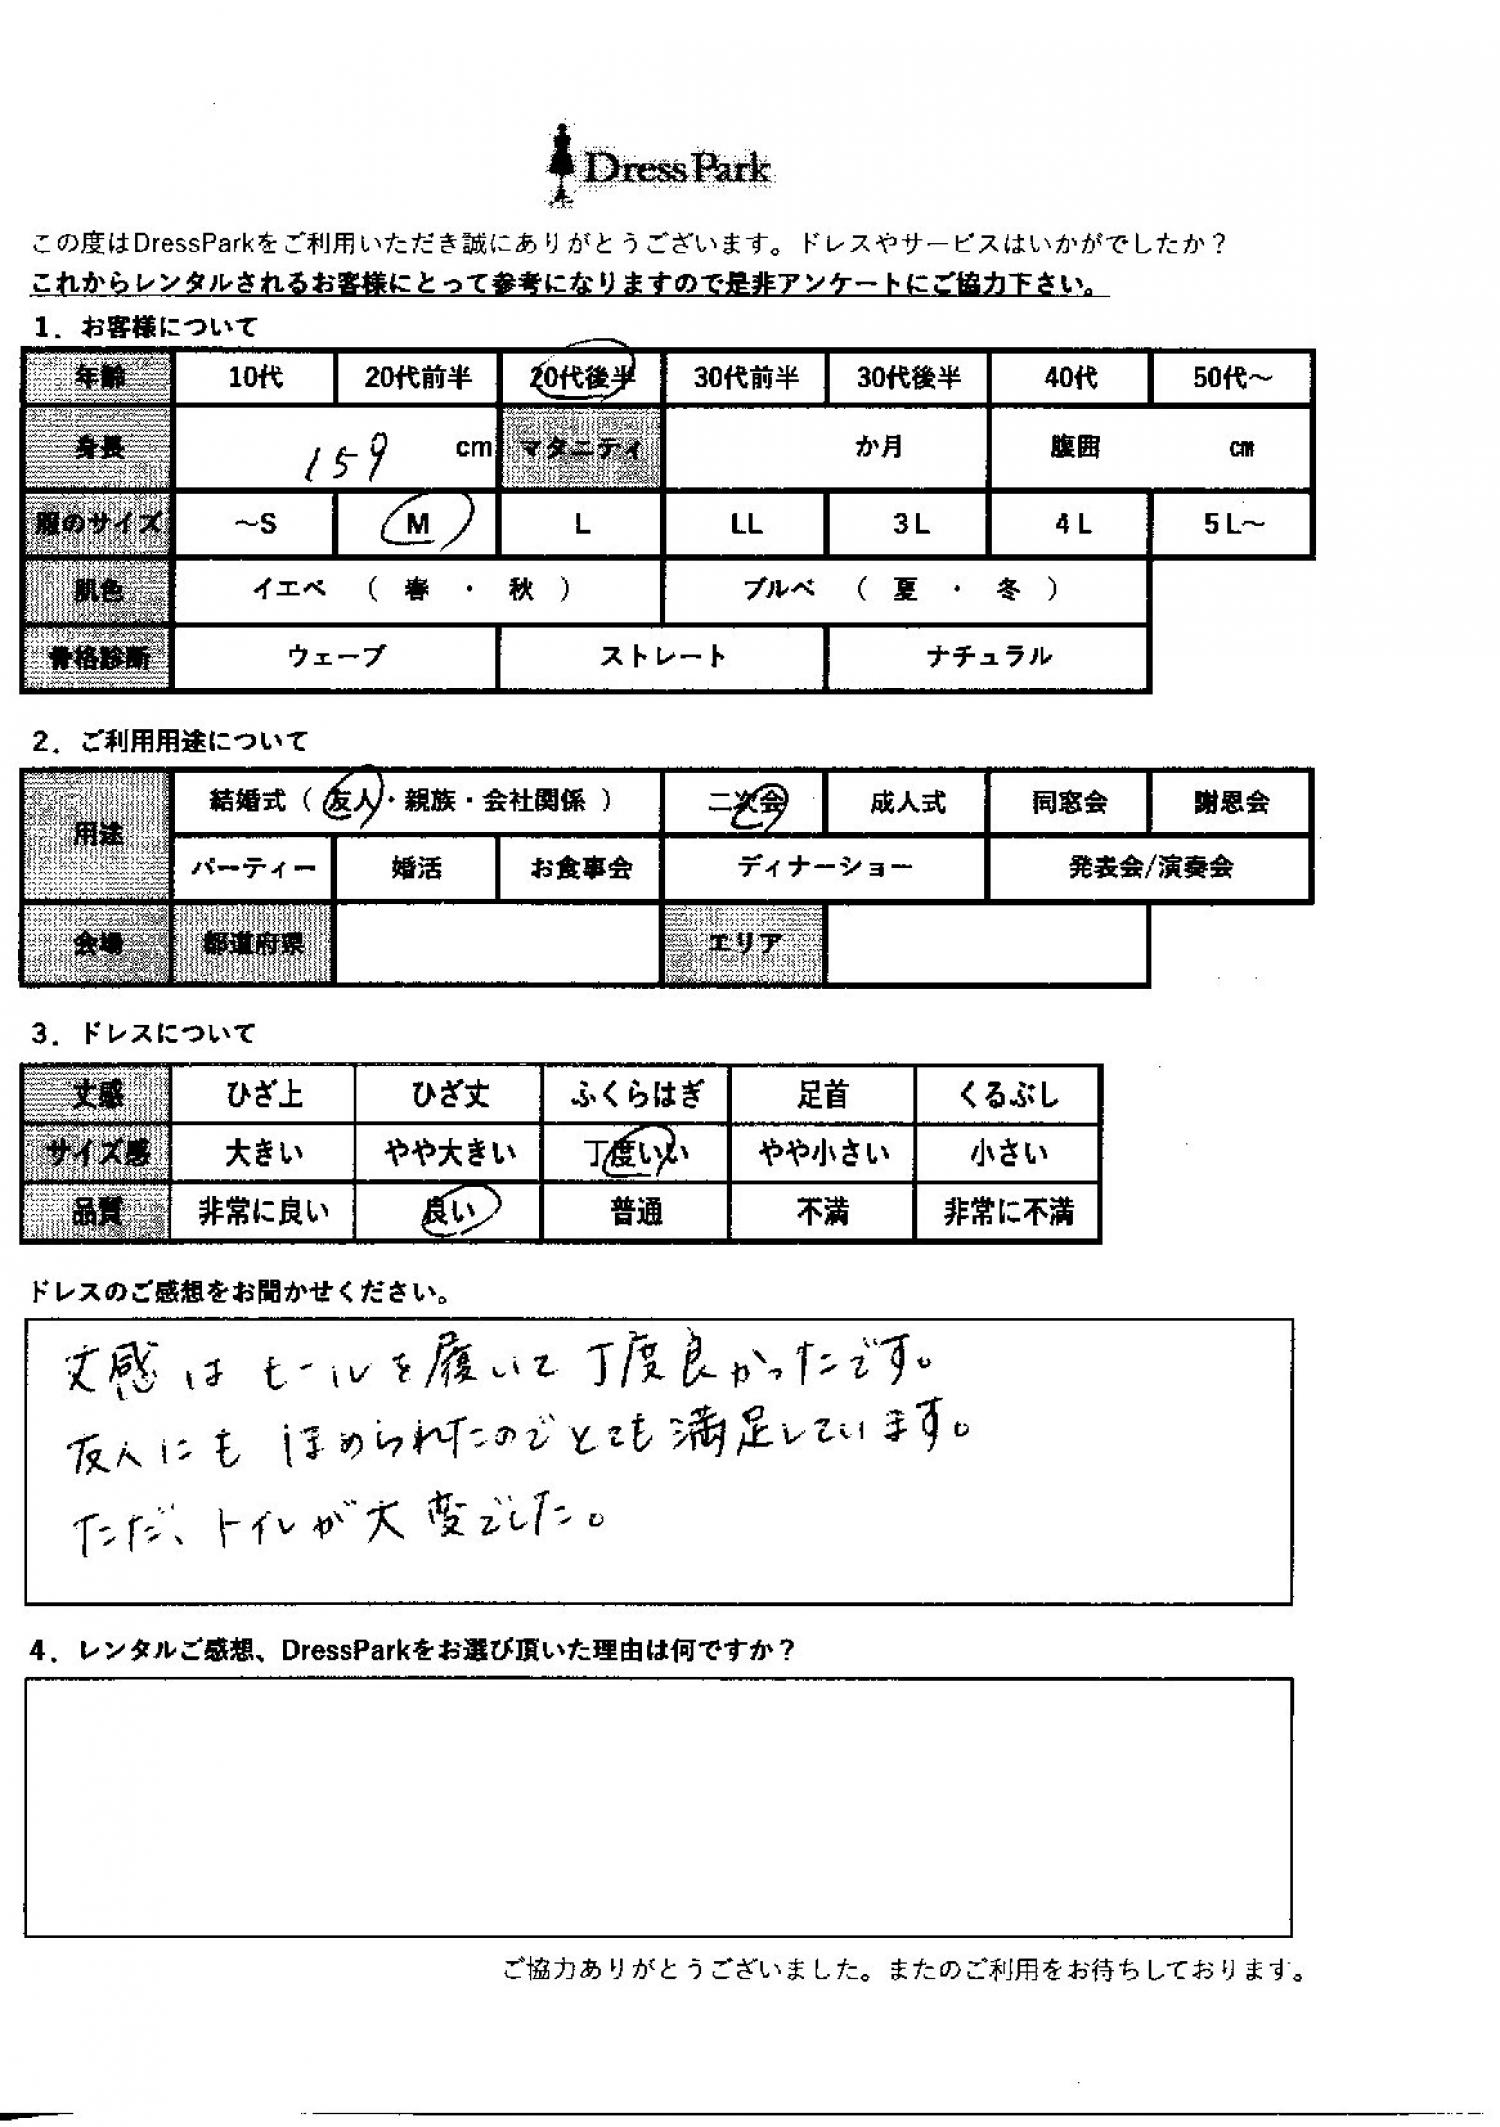 DressPark
この度はDressParkをご利用いただき誠にありがとうございます。ドレスやサービスはいかがでしたか？
これからレンタルされるお客様にとって参考になりますので是非アンケートにご協力下さい。
1．お客様について
年齢 10代 20代前半 20代後半 30代前半 30代後半 40代 50代～
身長 159 cm マタニティ か月 腹囲 cm
服のサイズ ～S M L LL 3L 4L 5L～
肌色 イエベ （ 春 ・ 秋 ） ブルベ （ 夏 ・ 冬 ）
骨格診断 ウェーブ ストレート ナチュラル
2．ご利用用途について
用途 結婚式（ 友人・親族・会社関係 ） 二次会 成人式 同窓会 謝恩会
パーティー 婚活 お食事会 ディナーショー 発表会/演奏会
会場 都道府県 エリア
3．ドレスについて
丈感 ひざ上 ひざ丈 ふくらはぎ 足首 くるぶし
サイズ感 大きい やや大きい 丁度いい やや小さい 小さい
品質 非常に良い 良い 普通 不満 非常に不満
ドレスのご感想をお聞かせください。
丈感はヒールを履いて丁度良かったです。
友人にもほめられたのでとても満足しています。
ただ、トイレが大変でした。
4．レンタルご感想、DressParkをお選び頂いた理由は何ですか？
ご協力ありがとうございました。またのご利用をお待ちしております。